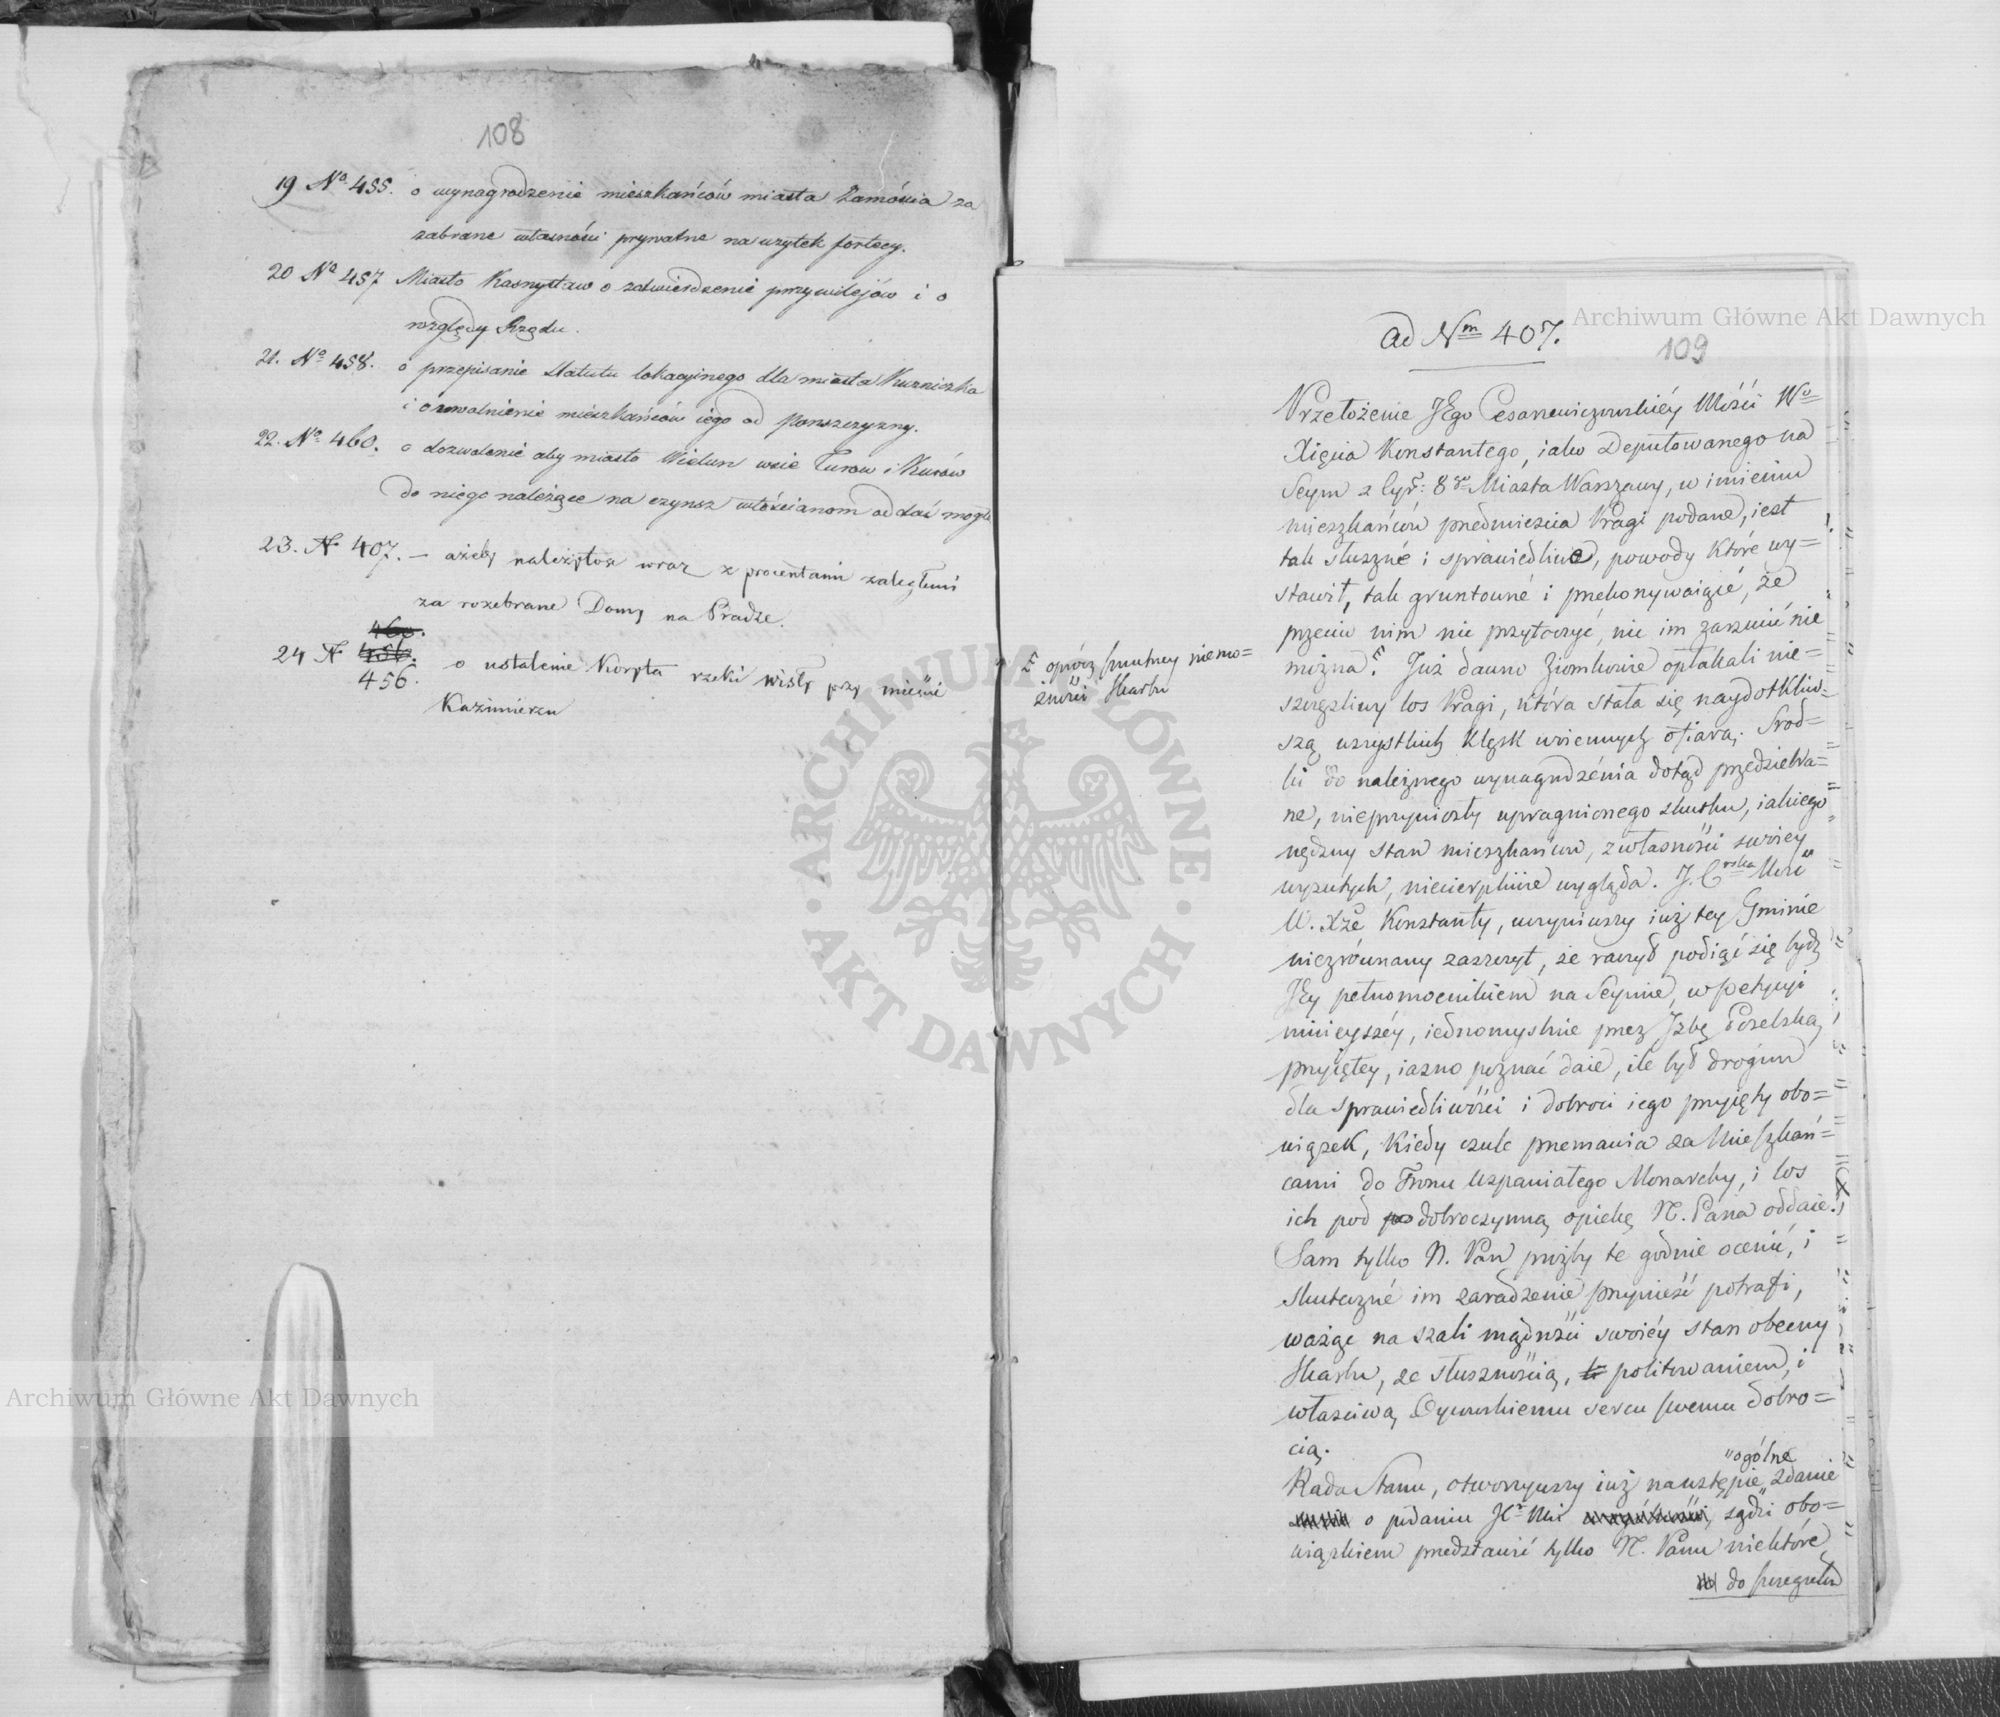 108
19 No 455. o wynagrodzenie mieszkańców miasta Zamościa za
zabrane własności prywatne na użytek fortecy.
20 No 457 Miasto Kasnystaw o zatwierdzenie przywilejów i o
względy Rządu.
21. No 458. o przepisanie Statutu lokacyjnego dla miasta Kuzniczka
i o uwolnienie mieszkańców iego od Panszczyzny.
22. No 460. o dozwolenie aby miasto Wielun wsie Turow i Kurów
do niego należące na czynsz włościanom oddać mogło
23. N 407. – ażeby należytość wraz z procentami zaległemi
za rozebrane Domy na Pradze.
460.
24 N 456.
456. o ustalenie Koryta rzeki wisły przy mieście
Kazimierzu
Archiwum Główne Akt Dawnych
ARCHIWUM GŁÓWNE AKT DAWNYCH
Archiwum Główne Akt Dawnych
ad Nm 407.
109
Przełożenie JEgo Cesarzewiczowskiéy Mości Wo
Xięcia Konstantego, iako Deputowanego na
Seym z Cyr: 8go Miasta Warszawy, w imieniu
mieszkańców przedmieścia Pragi podane, iest
tak słuszné i sprawiedliwe, powody które wy=
stawił, tak gruntowné i przekonywaiące, że
przeciw nim nic przytoczyć, nic im zarzucić nie
można. Już dawno Ziomkowie opłakali nie=
szczęśliwy los Pragi, która stała się naydotkliw=
szą wszystkich klęsk woiennych ofiarą. Srod=
ki do należnego wynagrodzénia dotąd przedziewa=
ne, nieprzyniosły upragnionego skutku, iakiego
nędzny stan mieszkańców, z własności swoiey
wyzutych, niecierpliwie wygląda. J. Crska Mość
W. Xże Konstanty, uczyniwszy iuż tey Gminie
niezrównany zaszczyt, że raczył podiąć się bydź
Jéy pełnomocnikiem na Seymie, w petycyi
ninieyszéy, iednomyslnie przez Jzbę Poselską
przyiętey, iasno poznać daie, ile był drogim
dla sprawiedliwości i dobroci iego przyięty obo=
wiązek, Kiedy czule przemawia za Mieszkań=
cami do Tronu Wspaniałego Monarchy, i los
ich pod dobroczynną opiekę N. Pana oddaie.
Sam tylko N. Pan prożby te godnie ocenić, i
skuteczné im zaradzenie przynieść potrafi,
ważąc na szali mądrości swoiéy stan obecny
Skarbu, ze słusznością, politowaniem, i
właściwą Oycowskiemu sercu swemu dobro=
cią.
Rada Stanu, otworzywszy iuż na wstępie "ogólne" zdanie
o podaniu sądzi obo=
wiązkiem przedstawić tylko N. Panu niektóre
do szczegułu
oprócz smutney niemo=
żności Skarbu